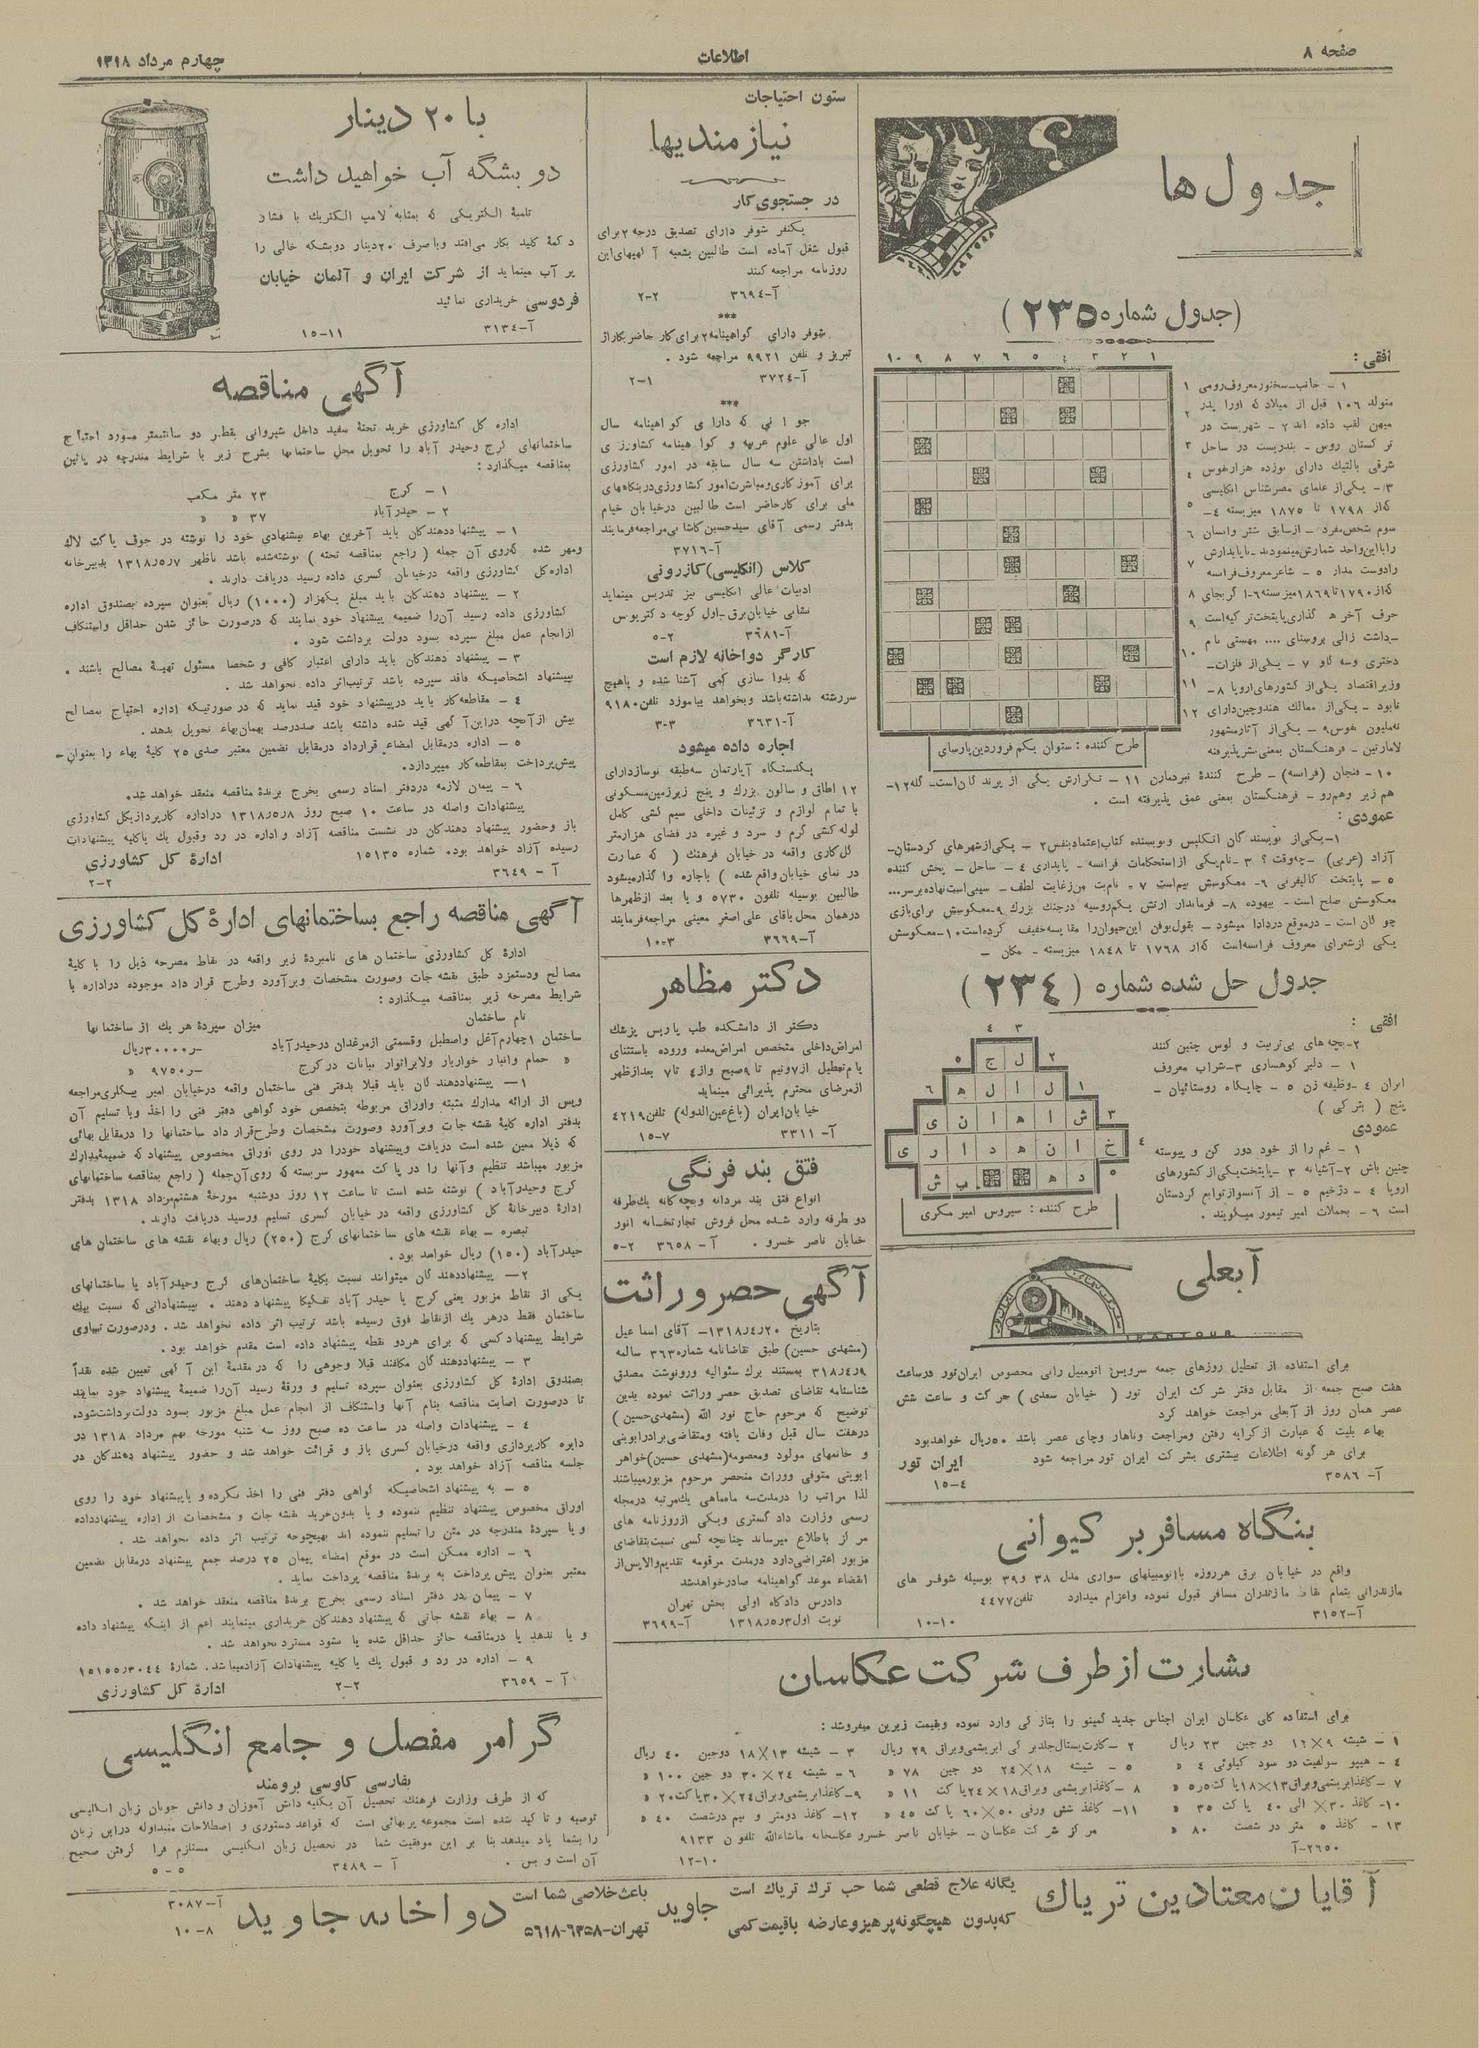 صفحه ۸
اطلاعات
چهارم مرداد ۱۳۱۸
جدول ها
(جدول شماره ۲۳۵)
۱ ۲ ۳ ٤ ٥ ٦ ۷ ۸ ۹ ۱۰
افقی :
۱ - جانب-سخنور معروف رومی
متولد ۱۰٦ قبل از میلاد که اورا پدر
میهن لقب داده اند ۲ - شهریست در
ترکستان روس - بندریست در ساحل
شرقی بالتیک دارای نوزده هزار نفوس
۳- یکی از علمای مصرشناس انگلیسی
که از ۱۷۹۸ تا ۱۸۷٥ میزیسته ٤-
سوم شخص مفرد - از سابق شتر و انسان
را با این واحد شمارش مینمودند-ناپایدارش
رادوست مدار ٥ - شاعر معروف فرانسه
که از ۱۷۹۰ تا ۱۸٦۹ میزیسته ٦-اگر بجای
حرف آخر ه گذاری پایتخت ترکیه است
دختری وسه گاو ۷ - یکی از فلزات-
وزیر اقتصاد یکی از کشورهای اروپا ۸-
نابود - یکی از ممالک هندوچین دارای
نه ملیون نفوس ۹ - یکی از آثار مشهور
لامارتین - فرهنگستان بمعنی ستر پذیرفته
طرح کننده : ستوان یکم فروردین پارسای
۱۰ - فنجان (فرانسه) - طرح کنندهٔ نبرد مارن ۱۱ - تکرارش یکی از پرندگان است - گله ۱۲-
هم زیر وهم رو - فرهنگستان بمعنی عمق پذیرفته است .
عمودی :
۱-یکی از نویسندگان انگلیس و نویسنده کتاب اعتماد بنفس ۲ - یکی از شهرهای کردستان-
آزاد (عربی) - چه وقت ؟ ۳ - نام یکی از استحکامات فرانسه - پایداری ٤ - ساحل - پخش کننده
٥ - پایتخت کالیفرنی ٦- معکوسش بیم است ۷ - نام بت من زغایت لطف - سیبی است نهاده بر سر...
معکوسش صلح است - بیهوده ۸- فرماندار ارتش یکم روسیه در جنک بزرك ۹-معکوسش برای بازی
چوگان است - در موقع درد ادا میشود - بقول بوفن این حیوان را مقایسه خفیف کرده است ۱۰-معکوسش
یکی از شعرای معروف فرانسه است که از ۱۷٦۸ تا ۱۸٤۸ میزیسته - مکان -
جدول حل شده شماره (۲۳٤)
افقی :
۲-بچه های بی تربیت و لوس چنین کنند
۱ - دلیر کوهساری ۳-شراب معروف
ایران ٤ -وظیفه زن ٥ - جایگاه روستائیان -
پنج ( بترکی )
عمودی
۱ - غم را از خود دور کن و پیوسته
چنین باش ۲-آشیانه ۳ -پایتخت یکی از کشورهای
اروپا ٤ - دژخیم ٥ - از آنسو از توابع کردستان
است ٦ - بحملات امیر تیمور میگویند .
ل ج
ل ا ل ه
ش ا ه ا ن ی
خ ا ن ه د ا ر ی
د ه ب ش
طرح کننده : سیروس امیر مکری
آبعلی
IRANTOUR
برای استفاده از تعطیل روزهای جمعه سرویس اتومبیل رانی مخصوص ایران تور در ساعت
هفت صبح جمعه از مقابل دفتر شرکت ایران تور ( خیابان سعدی ) حرکت و ساعت شش
عصر همان روز از آبعلی مراجعت خواهد کرد
بهاء بلیت که عبارت از کرایه رفتن ومراجعت وناهار وچای عصر باشد ٥۰ ریال خواهد بود
برای هر گونه اطلاعات بیشتری بشرکت ایران تور مراجعه شود
ایران تور
آ- ۳٥۸٦
٤-۱٥
بنگاه مسافر بر کیوانی
واقع در خیابان برق هر روزه با اتومبیلهای سواری مدل ۳۸ و ۳۹ بوسیله شوفر های
مازندرانی بتمام نقاط مازندران مسافر قبول نموده واعزام میدارد تلفن ٤٤۷۷
آ-۳۱٥۲
۱۰-۱۰
ستون احتیاجات
نیازمندیها
در جستجوی کار
یکنفر شوفر دارای تصدیق درجه ۲ برای
قبول شغل آماده است طالبین بشعبه آگهیهای این
روزنامه مراجعه کنند
آ-۳٦۹٤ ۲-۲
***
شوفر دارای گواهینامه ۲ برای کار حاضر بکار از
تبریز و تلفن ۹۹۲۱ مراجعه شود .
آ-۳۷۲٤ ۱-۲
***
جوانی که دارای گواهینامه سال
اول عالی علوم عربیه و گواهینامه کشاورزی
است باداشتن سه سال سابقه در امور کشاورزی
برای آموزگاری و مباشرت امور کشاورزی در بنگاههای
ملی برای کار حاضر است طالبین در خیابان خیام
بدفتر رسمی آقای سید حسین کاشانی مراجعه فرمایند
آ-۳۷۱٦
کلاس (انگلیسی) کازرونی
ادبیات عالی انگلیسی نیز تدریس مینماید
نشانی خیابان برق-اول کوچه دکتر یوس
آ-۳٦۸۱ ۲-٥
کارگر دواخانه لازم است
که بدوا سازی کمی آشنا شده و یا هیچ
سررشته نداشته باشد و بخواهد بیاموزد تلفن ۹۱۸۰
آ-۳٦۳۱ ۳-۳
اجاره داده میشود
یکدستگاه آپارتمان سه طبقه نوساز دارای
۱۲ اطاق و سالون بزرك و پنج زیرزمین مسکونی
با تمام لوازم و تزئینات داخلی سیم کشی کامل
لوله کشی گرم و سرد و غیره در فضای هزار متر
گل کاری واقعه در خیابان فرهنك ( که عمارت
در نمای خیابان واقع شده ) باجاره وا گذار میشود
طالبین بوسیله تلفون ٥۷۳۰ و یا بعد از ظهرها
در همان محل باقای علی اصغر معینی مراجعه فرمایند
آ-۳٦٦۹ ۳-۱۰
دکتر مظاهر
دکتر از دانشکده طب پاریس پزشك
امراض داخلی متخصص امراض معده وروده باستثنای
ایام تعطیل از ۷ ونیم تا ۹ صبح واز ٤ تا ۷ بعد از ظهر
از مرضای محترم پذیرائی مینماید
خیابان ایران (باغ عین الدوله) تلفن ٤۲۱۹
آ- ۳۳۱۱ ۷-۱٥
فتق بند فرنگی
انواع فتق بند مردانه وبچه گانه یك طرفه
دو طرفه وارد شده محل فروش تجارتخانه انور
خیابان ناصر خسرو . آ - ۳٦٥۸ ۲-٥
آگهی حصر وراثت
بتاریخ ۱۳۱۸ر٤ر۲۰- آقای اسماعیل
(مشهدی حسین) طبق تقاضانامه شماره ۳٦۳ سالمه
۳۱۸ر٤ر۹ بمستند برك سئوالیه ورونوشت مصدق
شناسنامه تقاضای تصدیق حصر وراثت نموده بدین
توضیح که مرحوم حاج نور الله (مشهدی حسین)
در هفت سال قبل وفات یافته ومتقاضی برادر ابوینی
و خانمهای مولود ومعصومه (مشهدی حسین) خواهر
ابوینی متوفی ووراث منحصر مرحوم مزبور میباشند
لذا مراتب را در مدت سه ماه ماهی یك مرتبه در مجله
رسمی وزارت داد گستری و یکی از روزنامه های
مرکز باطلاع میرساند چنانچه کسی نسبت بتقاضای
مزبور اعتراضی دارد در مدت مرقومه تقدیم والا پس از
انقضاء موعد گواهینامه صادر خواهد شد
دادرس دادگاه اولی بخش تهران
نوبت اول ۱۳۱۸ر٥ر۳ آ-۳٦۹۹
با ۲۰ دینار
دو بشگه آب خواهید داشت
تلمبهٔ الکتریکی که بمثابه لامپ الکتریك با فشار
دکمهٔ کلید بکار می افتد وباصرف ۲۰ دینار دوبشکه خالی را
پر آب مینماید از شرکت ایران و آلمان خیابان
فردوسی خریداری نمائید
آ-۳۱۳٤
۱۱-۱٥
آگهی مناقصه
اداره کل کشاورزی خرید تختهٔ سفید داخل شیروانی بقطر دو سانتیمتر مورد احتیاج
ساختمانهای کرج وحیدر آباد را تحویل محل ساختمانها بشرح زیر با شرایط مندرجه در پائین
بمناقصه میگذارد :
۱ - کرج ۲۳ متر مکعب
۲ - حیدر آباد ۳۷ « «
۱ - پیشنهاد دهندگان باید آخرین بهاء پیشنهادی خود را نوشته در جوف پاکت لاك
ومهر شده که روی آن جمله ( راجع بمناقصه تخته ) نوشته شده باشد تا ظهر ۱۳۱۸ر٥ر۷ بدبیرخانه
اداره کل کشاورزی واقعه در خیابان کسری داده رسید دریافت دارند .
۲ - پیشنهاد دهندگان باید مبلغ یکهزار (۱۰۰۰) ریال بعنوان سپرده بصندوق اداره
کشاورزی داده رسید آن را ضمیمه پیشنهاد خود نمایند که در صورت حائز شدن حداقل واستنکاف
از انجام عمل مبلغ سپرده بسود دولت برداشت شود .
۳ - پیشنهاد دهندگان باید دارای اعتبار کافی و شخصا مسئول تهیهٔ مصالح باشند .
بپیشنهاد اشخاصیکه فاقد سپرده باشد ترتیب اثر داده نخواهد شد .
٤ - مقاطعه کار باید در پیشنهاد خود قید نماید که در صورتیکه اداره احتیاج بمصالح
بیش از آنچه در این آگهی قید شده داشته باشد صد درصد بهمان بهاء تحویل بدهد .
٥ - اداره در مقابل امضاء قرارداد در مقابل تضمین معتبر صدی ۲٥ کلیهٔ بهاء را بعنوان-
پیش پرداخت بمقاطعه کار میپردازد.
٦ - پیمان لازمه در دفتر اسناد رسمی بخرج برندهٔ مناقصه منعقد خواهد شد.
پیشنهادات واصله در ساعت ۱۰ صبح روز ۱۳۱۸ر٥ر۸ در اداره کارپردازی کل کشاورزی
باز وحضور پیشنهاد دهندگان در نشست مناقصه آزاد و اداره در رد وقبول یك یا کلیه پیشنهادات
رسیده آزاد خواهد بود. شماره ۱٥۱۳٥ ادارهٔ کل کشاورزی
آ - ۳٦٤۹ ۲-۲
آگهی مناقصه راجع بساختمانهای ادارهٔ کل کشاورزی
ادارهٔ کل کشاورزی ساختمان های نامبردهٔ زیر واقعه در نقاط مصرحه ذیل را با کلیهٔ
مصالح ودستمزد طبق نقشه جات وصورت مشخصات وبرآورد وطرح قرارداد موجوده در اداره با
شرایط مصرحه زیر بمناقصه میگذارد :
نام ساختمان میزان سپردهٔ هر یك از ساختمانها
ساختمان ۱ چهارم آغل واصطبل وقسمتی از مرغدان در حیدر آباد ۳۰۰۰۰ر- ریال
« حمام وانبار خواربار ولابراتوار نباتات در کرج ۹۷٥۰ر- «
۱ - پیشنهاد دهندگان باید قبلا بدفتر فنی ساختمان واقعه در خیابان امیر بیکلری مراجعه
وپس از ارائه مدارك مثبته واوراق مربوطه بتخصص خود گواهی دفتر فنی را اخذ وبا تسلیم آن
بدفتر اداره کلیهٔ نقشه جات وبرآورد وصورت مشخصات وطرح قرارداد ساختمانها را در مقابل بهائی
که ذیلا معین شده است دریافت وپیشنهاد خود را در روی اوراق مخصوص پیشنهاد که ضمیمهٔ مدارك
مزبور میباشد تنظیم وآنها را در پاکت ممهور سربسته که روی آن جمله ( راجع بمناقصه ساختمانهای
کرج وحیدر آباد ) نوشته شده است تا ساعت ۱۲ روز دوشنبه مورخهٔ هشتم مرداد ۱۳۱۸ بدفتر
ادارهٔ دبیرخانهٔ کل کشاورزی واقعه در خیابان کسری تسلیم ورسید دریافت دارند.
تبصره - بهاء نقشه های ساختمانهای کرج (۲٥۰) ریال وبهاء نقشه های ساختمان های
حیدر آباد (۱٥۰) ریال خواهد بود .
۲ - پیشنهاد دهندگان میتوانند نسبت بکلیهٔ ساختمان های کرج وحیدر آباد یا ساختمانهای
یکی از نقاط مزبور یعنی کرج یا حیدر آباد تفکیکا پیشنهاد دهند . بپیشنهاداتی که نسبت بیك
ساختمان فقط در هر یك از نقاط فوق رسیده باشد ترتیب اثر داده نخواهد شد . ودر صورت تساوی
شرایط پیشنهاد کسی که برای هر دو نقطه پیشنهاد داده است مقدم خواهد بود .
۳ - پیشنهاد دهندگان مکلفند قبلا وجوهی را که در مقدمهٔ این آگهی تعیین شده نقداً
بصندوق ادارهٔ کل کشاورزی بعنوان سپرده تسلیم و ورقهٔ رسید آن را ضمیمهٔ پیشنهاد خود نمایند
تا در صورت اصابت مناقصه بنام آنها واستنکاف از انجام عمل مبلغ مزبور بسود دولت برداشت شود.
٤ - پیشنهادات واصله در ساعت ده صبح روز سه شنبه مورخه نهم مرداد ۱۳۱۸ در
دایره کارپردازی واقعه در خیابان کسری باز و قرائت خواهد شد و حضور پیشنهاد دهندگان در
جلسه مناقصه آزاد خواهد بود .
٥ - به پیشنهاد اشخاصیکه گواهی دفتر فنی را اخذ نکرده و یا پیشنهاد خود را روی
اوراق مخصوص پیشنهاد تنظیم ننموده و یا بدون خرید نقشه جات و مشخصات از اداره پیشنهاد داده
و یا سپردهٔ مندرجه در متن را تسلیم ننموده اند بهیچوجه ترتیب اثر داده نخواهد شد .
٦ - اداره ممکن است در موقع امضاء پیمان ۲٥ درصد جمع پیشنهاد در مقابل تضمین
معتبر بعنوان پیش پرداخت به برندهٔ مناقصه پرداخت نماید .
۷ - پیمان در دفتر اسناد رسمی بخرج برندهٔ مناقصه منعقد خواهد شد .
۸ - بهاء نقشه جاتی که پیشنهاد دهندگان خریداری مینمایند اعم از اینکه پیشنهاد داده
و یا ندهد یا در مناقصه حائز حداقل شده یا نشود مسترد نخواهد شد .
۹ - اداره در رد و قبول یك یا کلیه پیشنهادات آزاد میباشد. شمارهٔ ۱٥۱٥٥ر۳۰٤٤
آ - ۳٦٥۹ ۲-۲ ادارهٔ کل کشاورزی
گرامر مفصل و جامع انگلیسی
بفارسی کاوسی برومند
که از طرف وزارت فرهنك تحصیل آن بکلیه دانش آموزان و دانش جویان زبان انگلیسی
توصیه و تاکید شده است مجموعه پربهائی است که قواعد دستوری و اصطلاحات متداوله در این زبان
را بشما یاد میدهد بنا بر این موفقیت شما در تحصیل زبان انگلیسی مستلزم فرا گرفتن صحیح
آن است و بس .
آ - ۳٤۸۹ ٥-٥
بشارت از طرف شرکت عکاسان
برای استفاده کلی عکاسان ایران اجناس جدید لمینو را بتازگی وارد نموده وبقیمت زیرین میفروشد :
۱ - شیشه ۹×۱۲ دو جین ۲۳ ریال ۲ -کارت پستال جلدبرگی ابریشمی وبراق ۲۹ ریال ۳ - شیشه ۱۳×۱۸ دوجین ٤۰ ریال
٤ - هیپو سولفیت دو سود کیلوئی ٤ « ٥ - شیشه ۱۸×۲٤ دو جین ۷۸ « ٦ - شیشه ۲٤×۳۰ دو جین ۱۰۰ «
۷ -کاغذ ابریشمی وبراق ۱۳×۱۸ پاکت ٥ر٥ « ۸ - کاغذ ابریشمی وبراق ۱۸×۲٤ پاکت ۱۱ « ۹-کاغذ ابریشمی وبراق ۲٤×۳۰ پاکت ۲۰ «
۱۰- کاغذ ۳۰× الی ٤۰ پاکت ۳٥ « ۱۱- کاغذ شش ورقی ٥۰×٦۰ پاکت ٤٥ « ۱۲- کاغذ دومتر و نیم در شصت ٤۰ «
۱۳ - کاغذ ٥ متر در شصت ۸۰ « مرکز شرکت عکاسان - خیابان ناصر خسرو عکاسخانه ماشاءالله تلفون ۹۱۳۳
۲٦٥۰-آ
۱۰-۱۲
آقایان معتادین تریاك
یگانه علاج قطعی شما حب ترك تریاك است
که بدون هیچگونه پرهیز و عارضه باقیمت کمی
جاوید
باعث خلاصی شما است
تهران-٦۳٥۸-٥٦۱۸
دواخانه جاوید
آ-۳۰۸۷
۸-۱۰